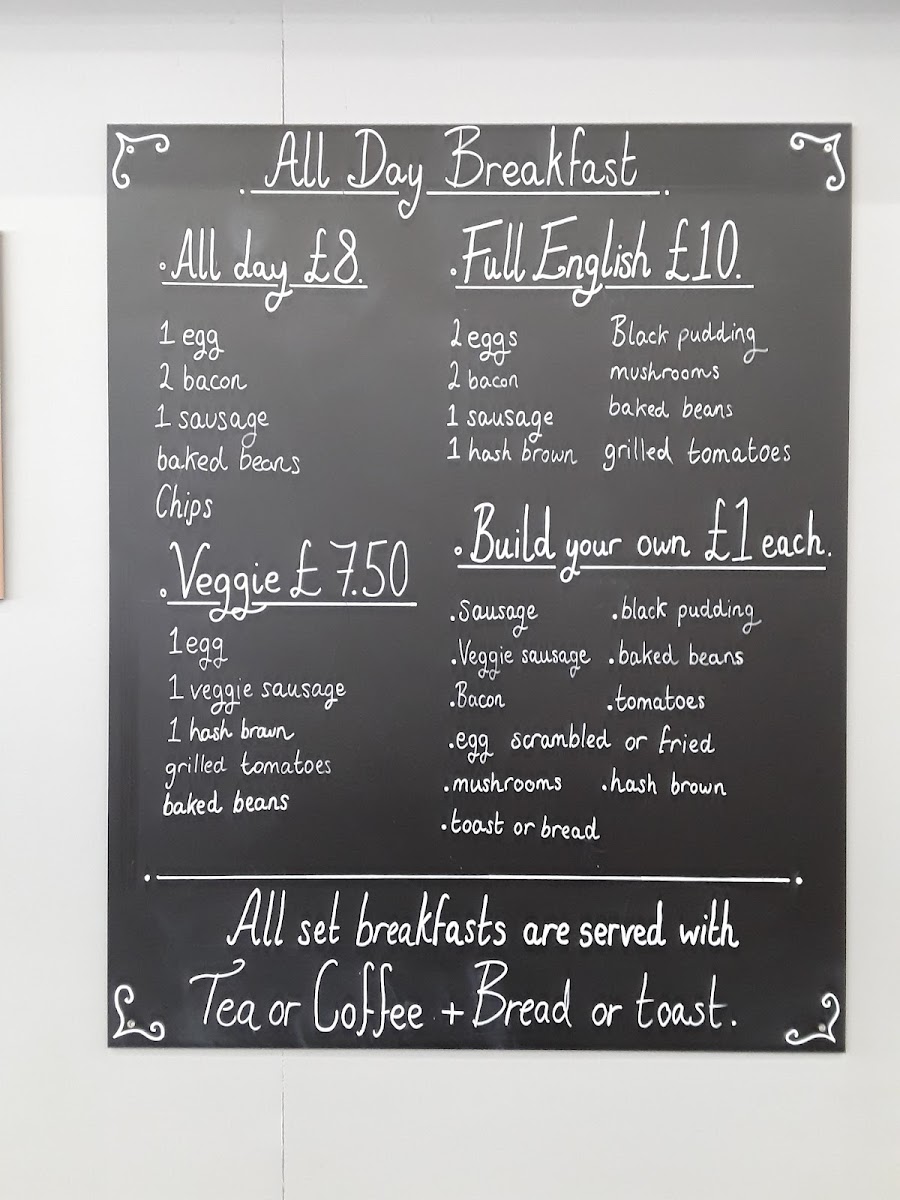 All Day Breakfast
All day £8.
1 egg
2 bacon
1 sausage
baked beans
Chips
Veggie £7.50
1 egg
1 veggie sausage
1 hash brown
grilled tomatoes
baked beans
Full English £10.
2 eggs
2 bacon
1 sausage
1 hash brown
Black pudding
mushrooms
baked beans
grilled tomatoes
Build your own £1 each.
.Sausage
.Veggie sausage
.Bacon
.black pudding
.baked beans
.tomatoes
.egg scrambled or fried
.mushrooms .hash brown
.toast or bread
All set breakfasts are served with
Tea or Coffee + Bread or toast.